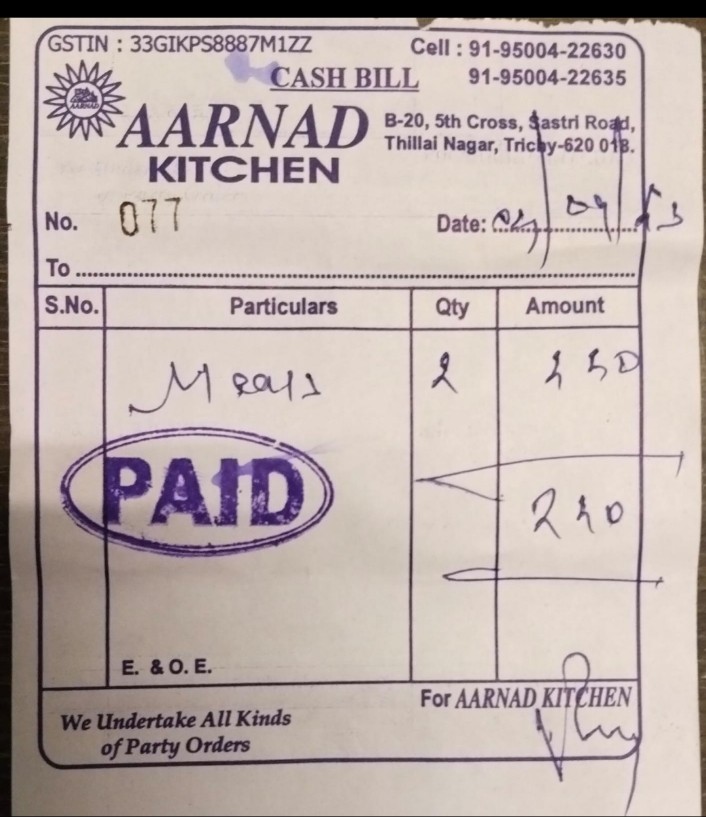 GSTIN : 33GIKPS8887M1ZZ
Cell : 91-95004-22630
91-95004-22635
CASH BILL
AARNAD
KITCHEN
B-20, 5th Cross, Sastri Road,
Thillai Nagar, Trichy-620 018.
No. 077
Date:
To
S.No. Particulars Qty Amount
Meals 2
PAID
E. & O.E.
For AARNAD KITCHEN
We Undertake All Kinds
of Party Orders